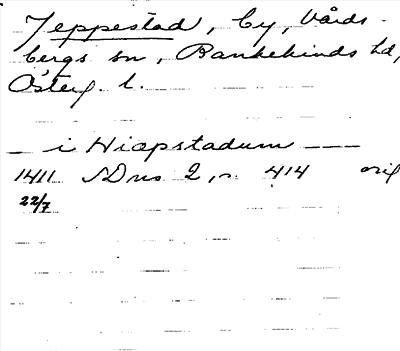 Jeppestad, by, Vårds-
bergs sn, Bankekinds hd,
Österg. l.
— i Hiapstadum —
1411 SDns 2, s. 414 orig
22/7